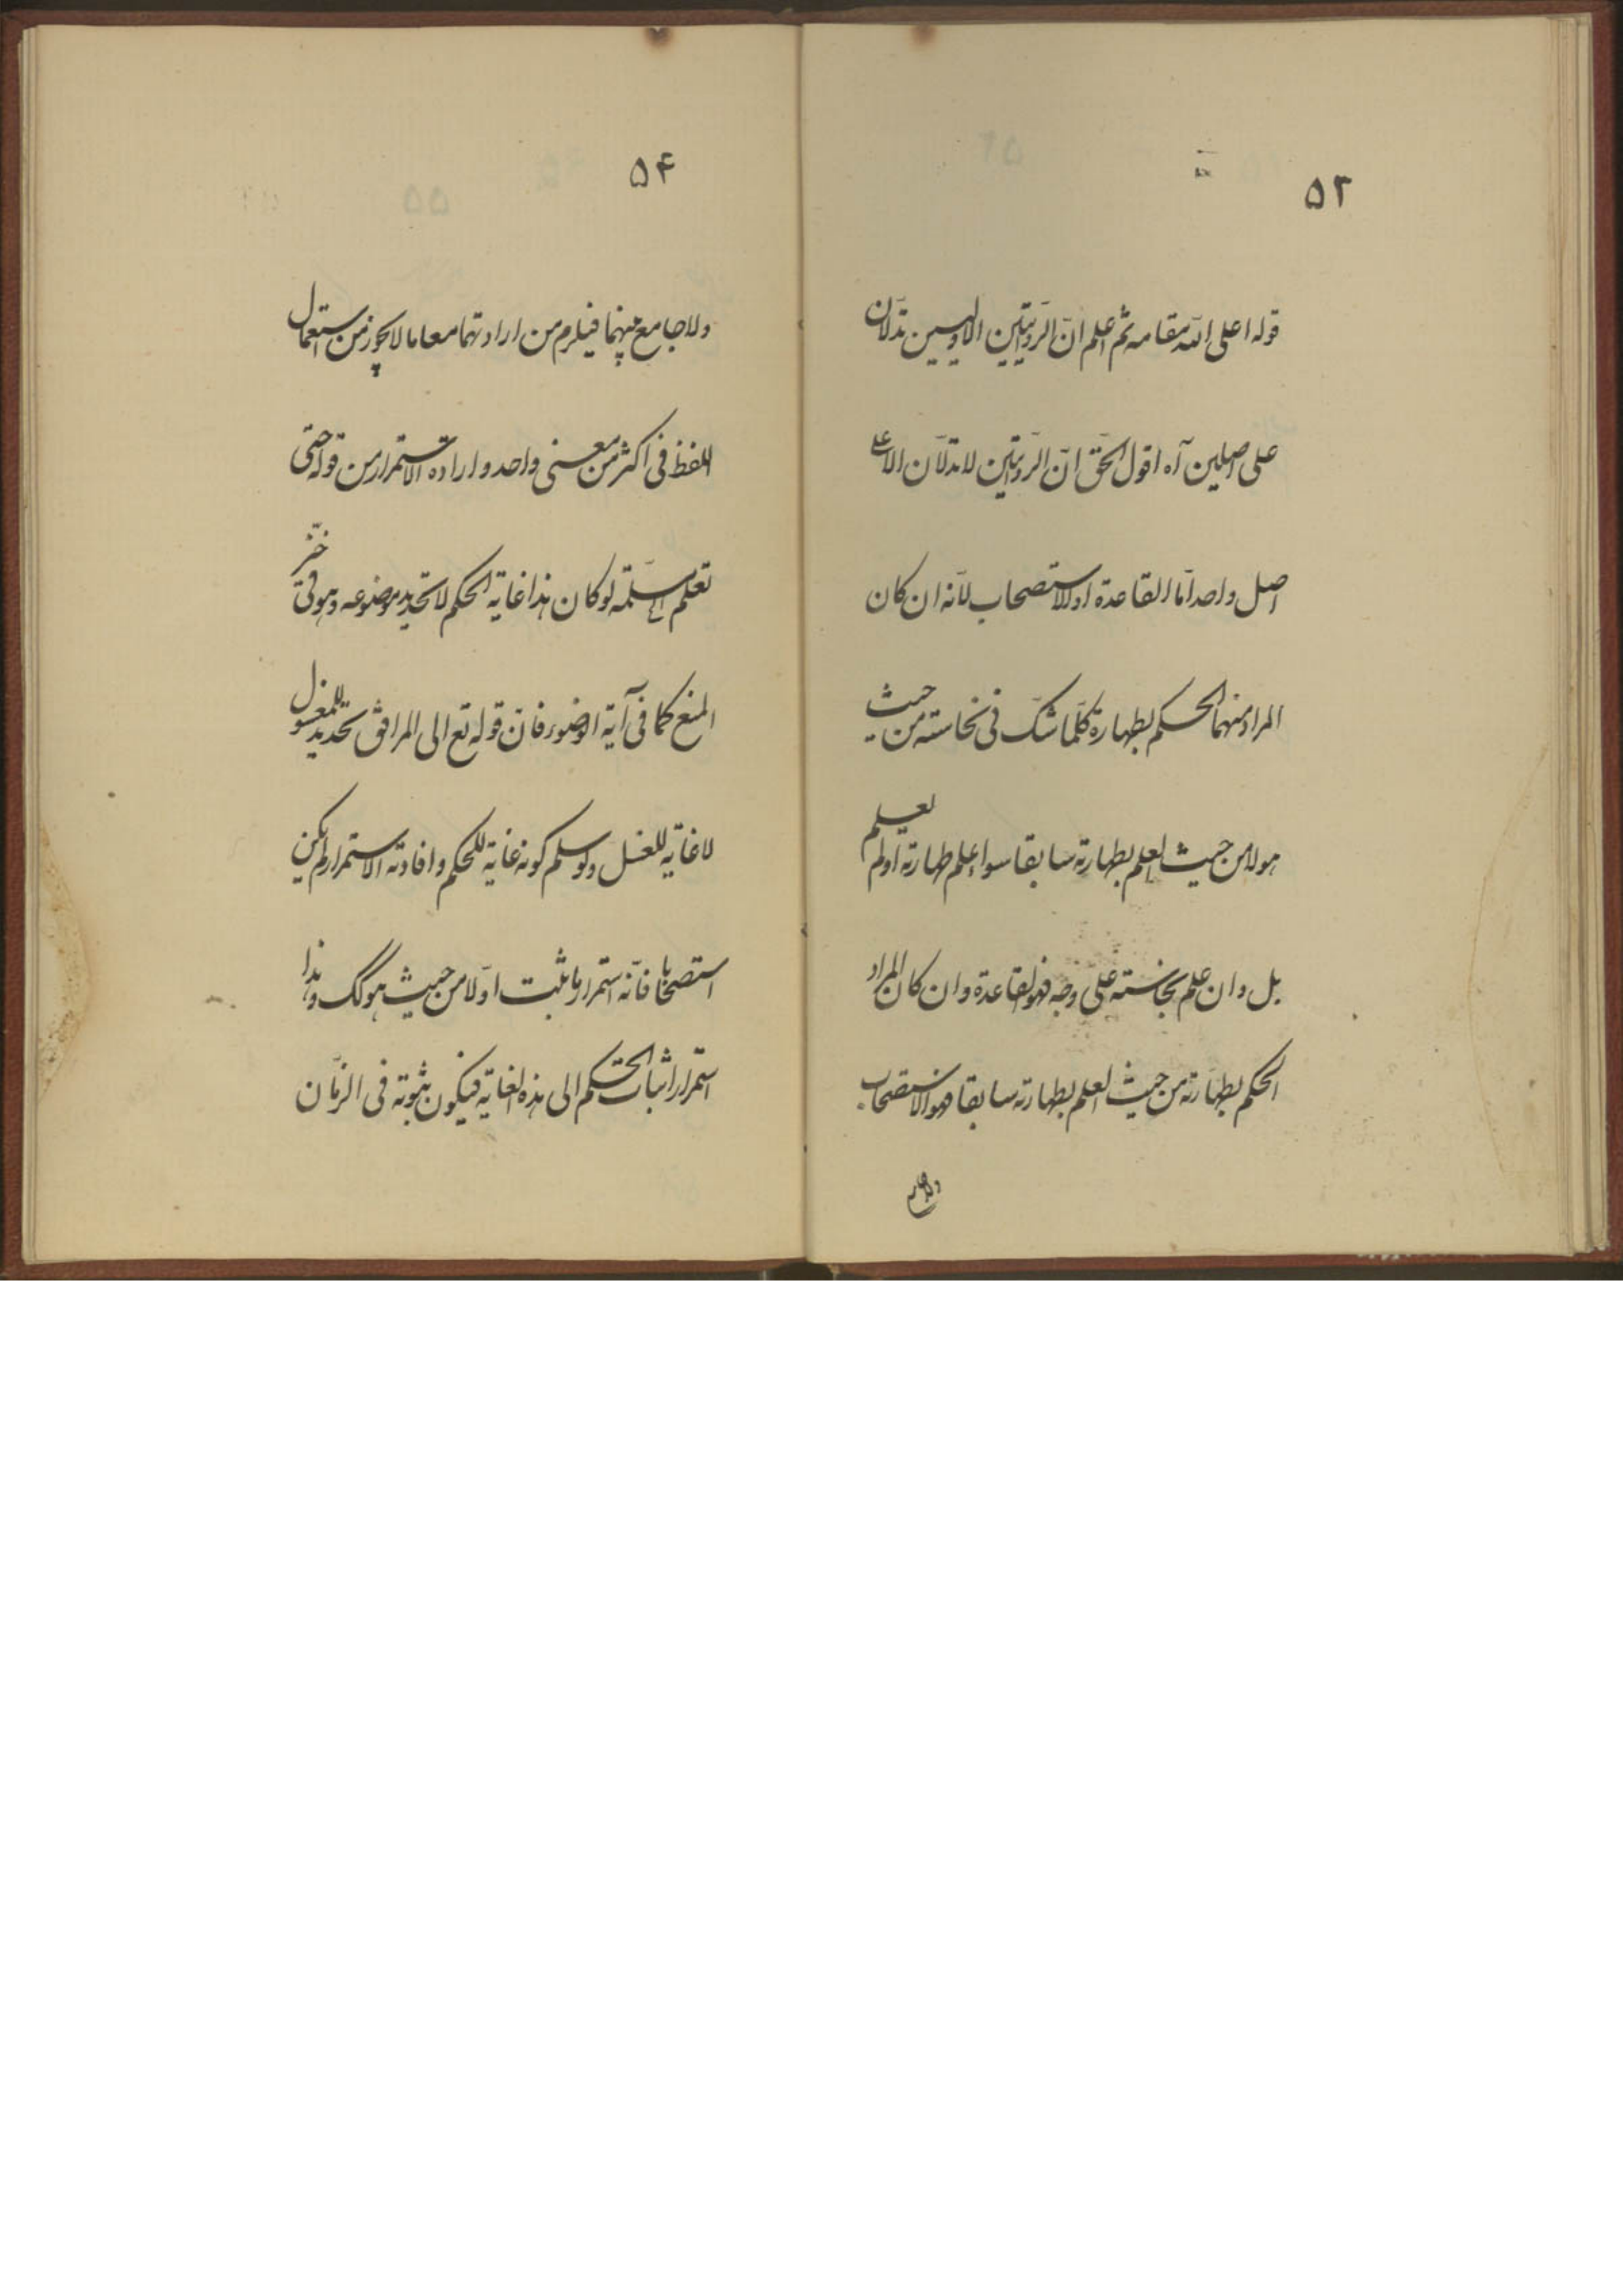 ۵۳
قوله اعلی الله مقامه ثم اعلم انّ الروایتین الاولیین تدلّان
علی اصلین آه اقول الحقّ انّ الروایتین لا تدلّان الا علی
اصل واحد امّا القاعدة او الاستصحاب لانّه ان کان
المراد منهما الحکم بطهارة کلّما شکّ فی نجاسته من حیث
هو لا من حیث العلم بطهارته سابقا سواء علم طهارته او لم یعلم
بل و ان علم نجاسته علی وجه فهو القاعدة و ان کان المراد
الحکم بطهارته من حیث العلم بطهارته سابقا فهو الاستصحاب
۵۴
و لا جامع بینهما فیلزم من ارادتهما معا ما لا یجوز من استعمال
اللفظ فی اکثر من معنی واحد و ارادة الاستمرار من قوله حتّی
تعلم مسلّمة لو کان هذا غایة الحکم لا تحدید موضوعه و هو فی حیّز
المنع کما فی آیة الوضوء فانّ قوله تع الی المرافق تحدید للمغسول
لا غایة للغسل و لو سلم کونه غایة للحکم و افادته الاستمرار لم یکن
استصحابا فانّه استمرار ما ثبت اوّلا من حیث هو کک و هذا
استمرار اثبات الحکم الی هذه الغایة فیکون ثبوته فی الزمان